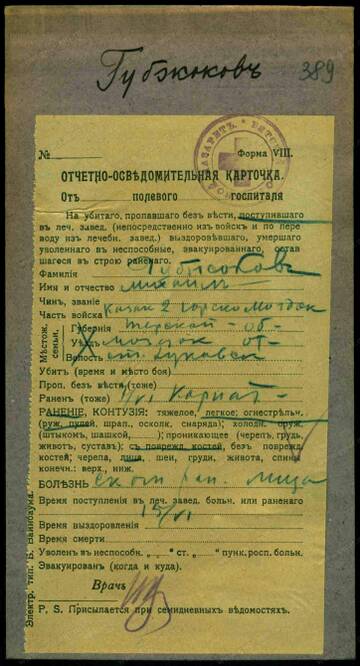 Губжоковъ
389
№ Форма VIII.
ОТЧЕТНО-ОСВѢДОМИТЕЛЬНАЯ КАРТОЧКА.
Отъ полевого госпиталя
На убитаго, пропавшаго безъ вѣсти, поступившаго
въ леч. завед. (непосредственно изъ войскъ и по пере
воду изъ лечебн. завед.) выздоровѣвшаго, умершаго
уволеннаго въ неспособные, эвакуированнаго, остав
шагося въ строю раненаго.
Фамилія Губжоковъ
Имя и отчество Михаилъ
Чинъ, званіе Казак
Часть войска 2 Горско Моздок
Мѣстож. семьи,
Губернія Терской - об -
Уѣздъ Моздок от -
Волость ст. Луковск
Убитъ (время и мѣсто боя)
Проп. безъ вѣсти (тоже)
Раненъ (тоже) VI Карпат -
РАНЕНІЕ, КОНТУЗІЯ: тяжелое, легкое: огнестрѣльн.
(руж. пулей, шрап., осколк. снаряда); холодн. оруж.
(штыкомъ, шашкой, ......); проникающее (черепъ, грудь,
животъ, суставъ); съ поврежд. костей, безъ поврежд
костей; черепа, лица, шеи, груди, живота, спины
конечн.: верх., ниж.
БОЛѢЗНЬ ран. лица
Время поступленія въ леч. завед. больн. или раненаго
15/VI
Время выздоровленія
Время смерти
Уволенъ въ неспособн. „ „ ст. „ пунк. росп. болѣзн.
Эвакуированъ (когда и куда).
Врачъ
P. S. Присылается при семидневныхъ вѣдомостяхъ.
Электр. тип. Б. Вайнбаума.